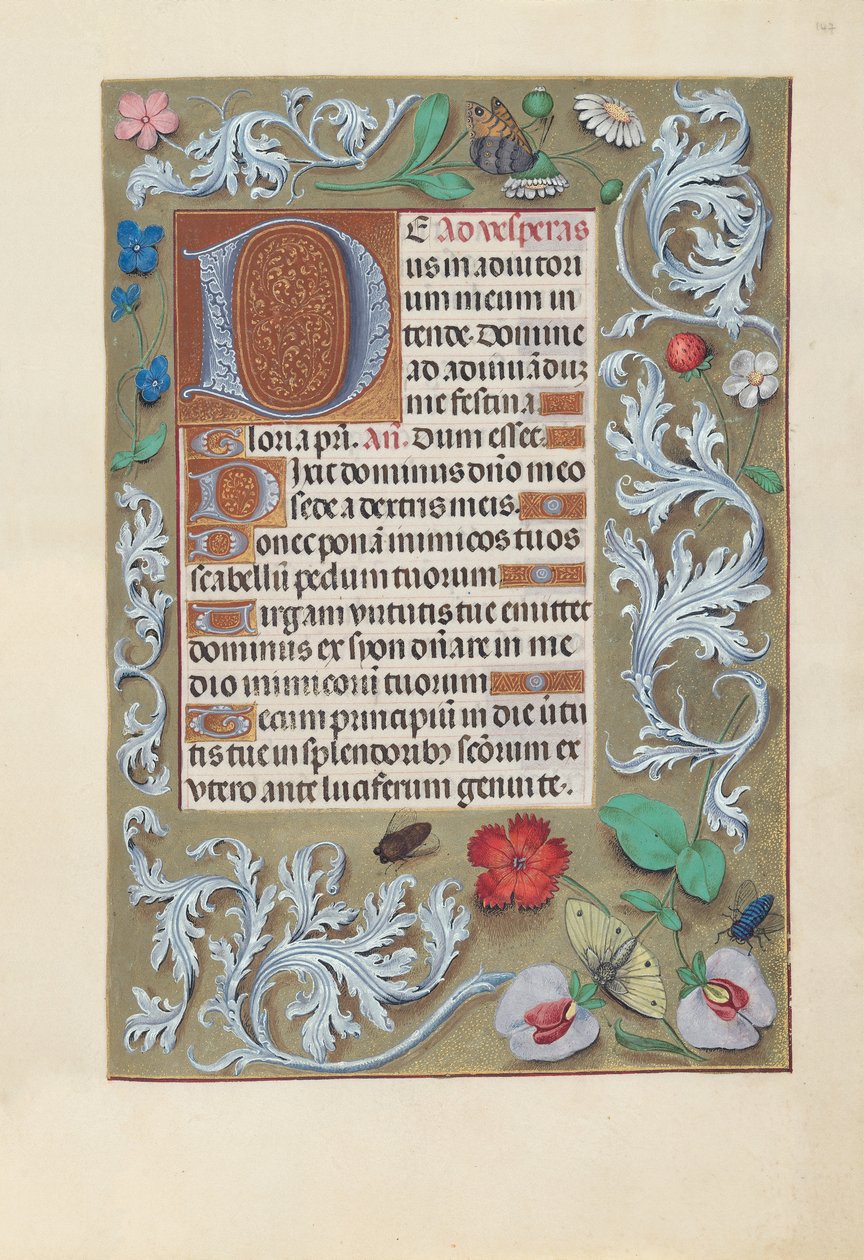 147
DE Ad vesperas
us in adiutori
um meum in
tende. Domine
ad adiuuādūz
me festina.
Gloria pr̄i. An̄. Dum esset.
Dixit dominus dn̄o meo
sede a dextris meis.
Donec ponā inimicos tuos
scabellū pedum tuorum
Uirgam uirtutis tue emittet
dominus ex syon dn̄are in me
dio inimicorū tuorum
Tecum principiū in die ūtu
tis tue in splendoribꝫ scōrum ex
vtero ante luciferum genui te.